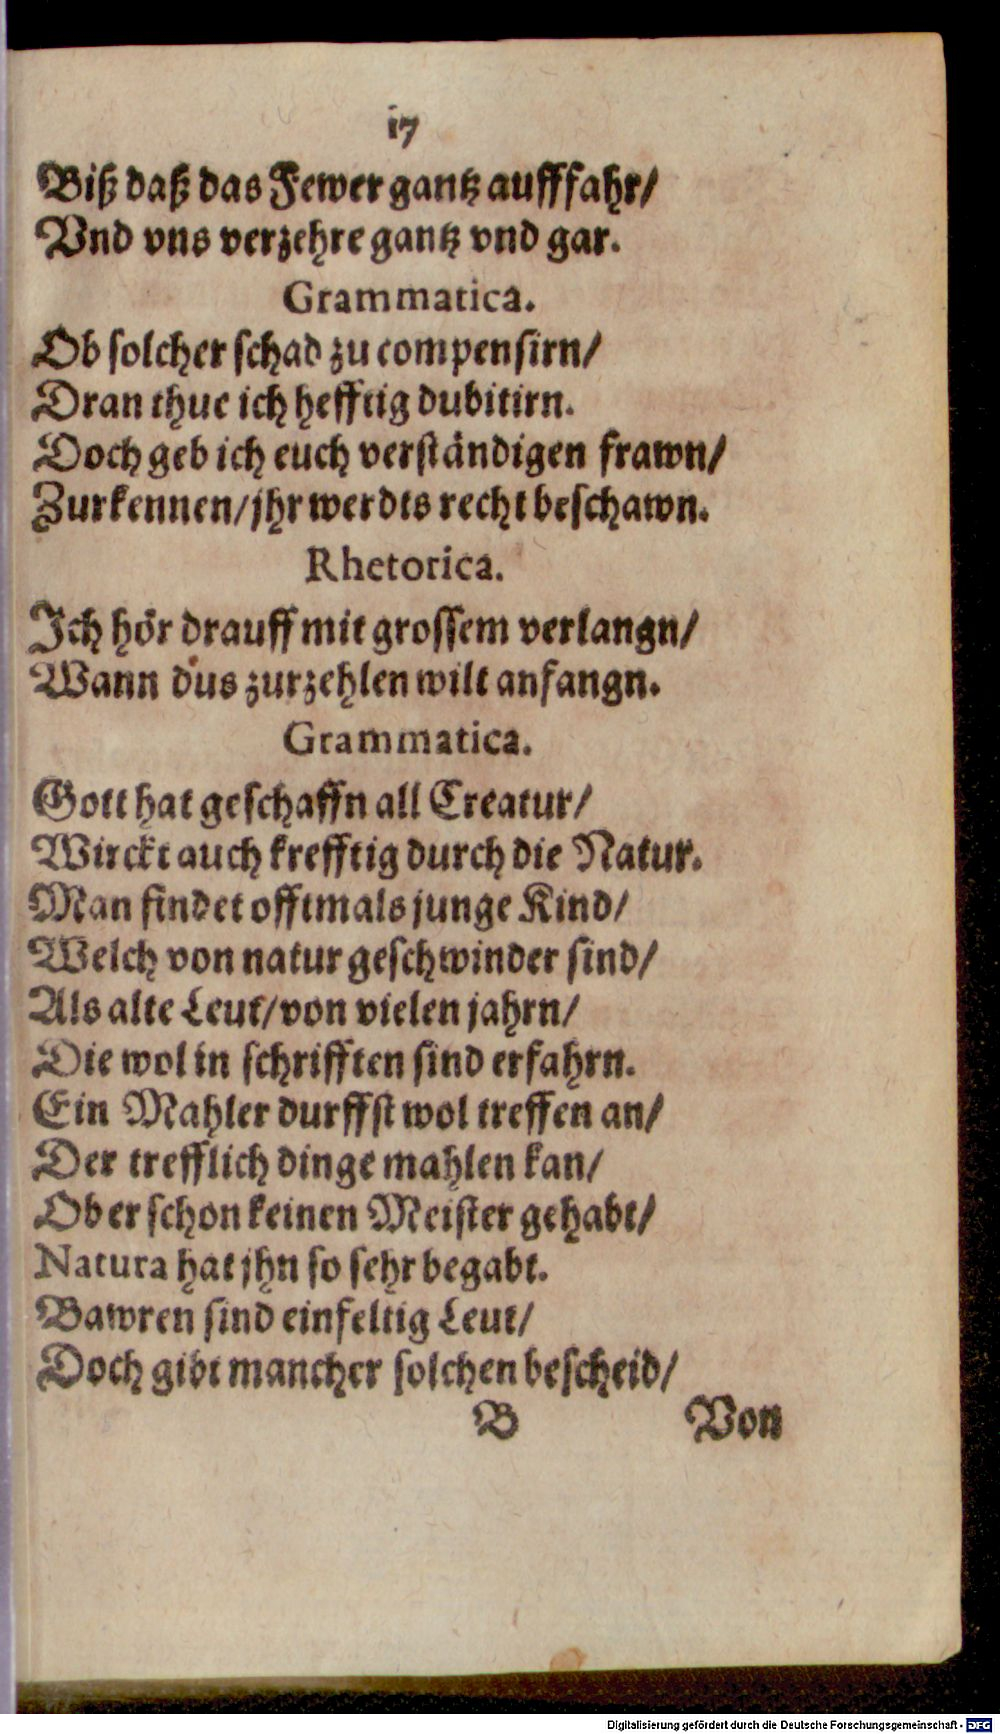 17
Biß daß das Fewer gantz aufffahr/
Vnd vns verzehre gantz vnd gar.
Grammatica.
Ob solcher schad zu compensirn/
Dran thue ich hefftig dubitirn.
Doch geb ich euch verständigen frawn/
Zurkennen/jhr werdts recht beschawn.
Rhetorica.
Ich hör drauff mit grossem verlangn/
Wann dus zurzehlen wilt anfangn.
Grammatica.
Gott hat geschaffn all Creatur/
Wirckt auch krefftig durch die Natur.
Man findet offtmals junge Kind/
Welch von natur geschwinder sind/
Als alte Leut/von vielen jahrn/
Die wol in schrifften sind erfahrn.
Ein Mahler durffst wol treffen an/
Der trefflich dinge mahlen kan/
Ob er schon keinen Meister gehabt/
Natura hat jhn so sehr begabt.
Bawren sind einfeltig Leut/
Doch gibt mancher solchen bescheid/
B Von
Digitalisierung gefördert durch die Deutsche Forschungsgemeinschaft - DFG